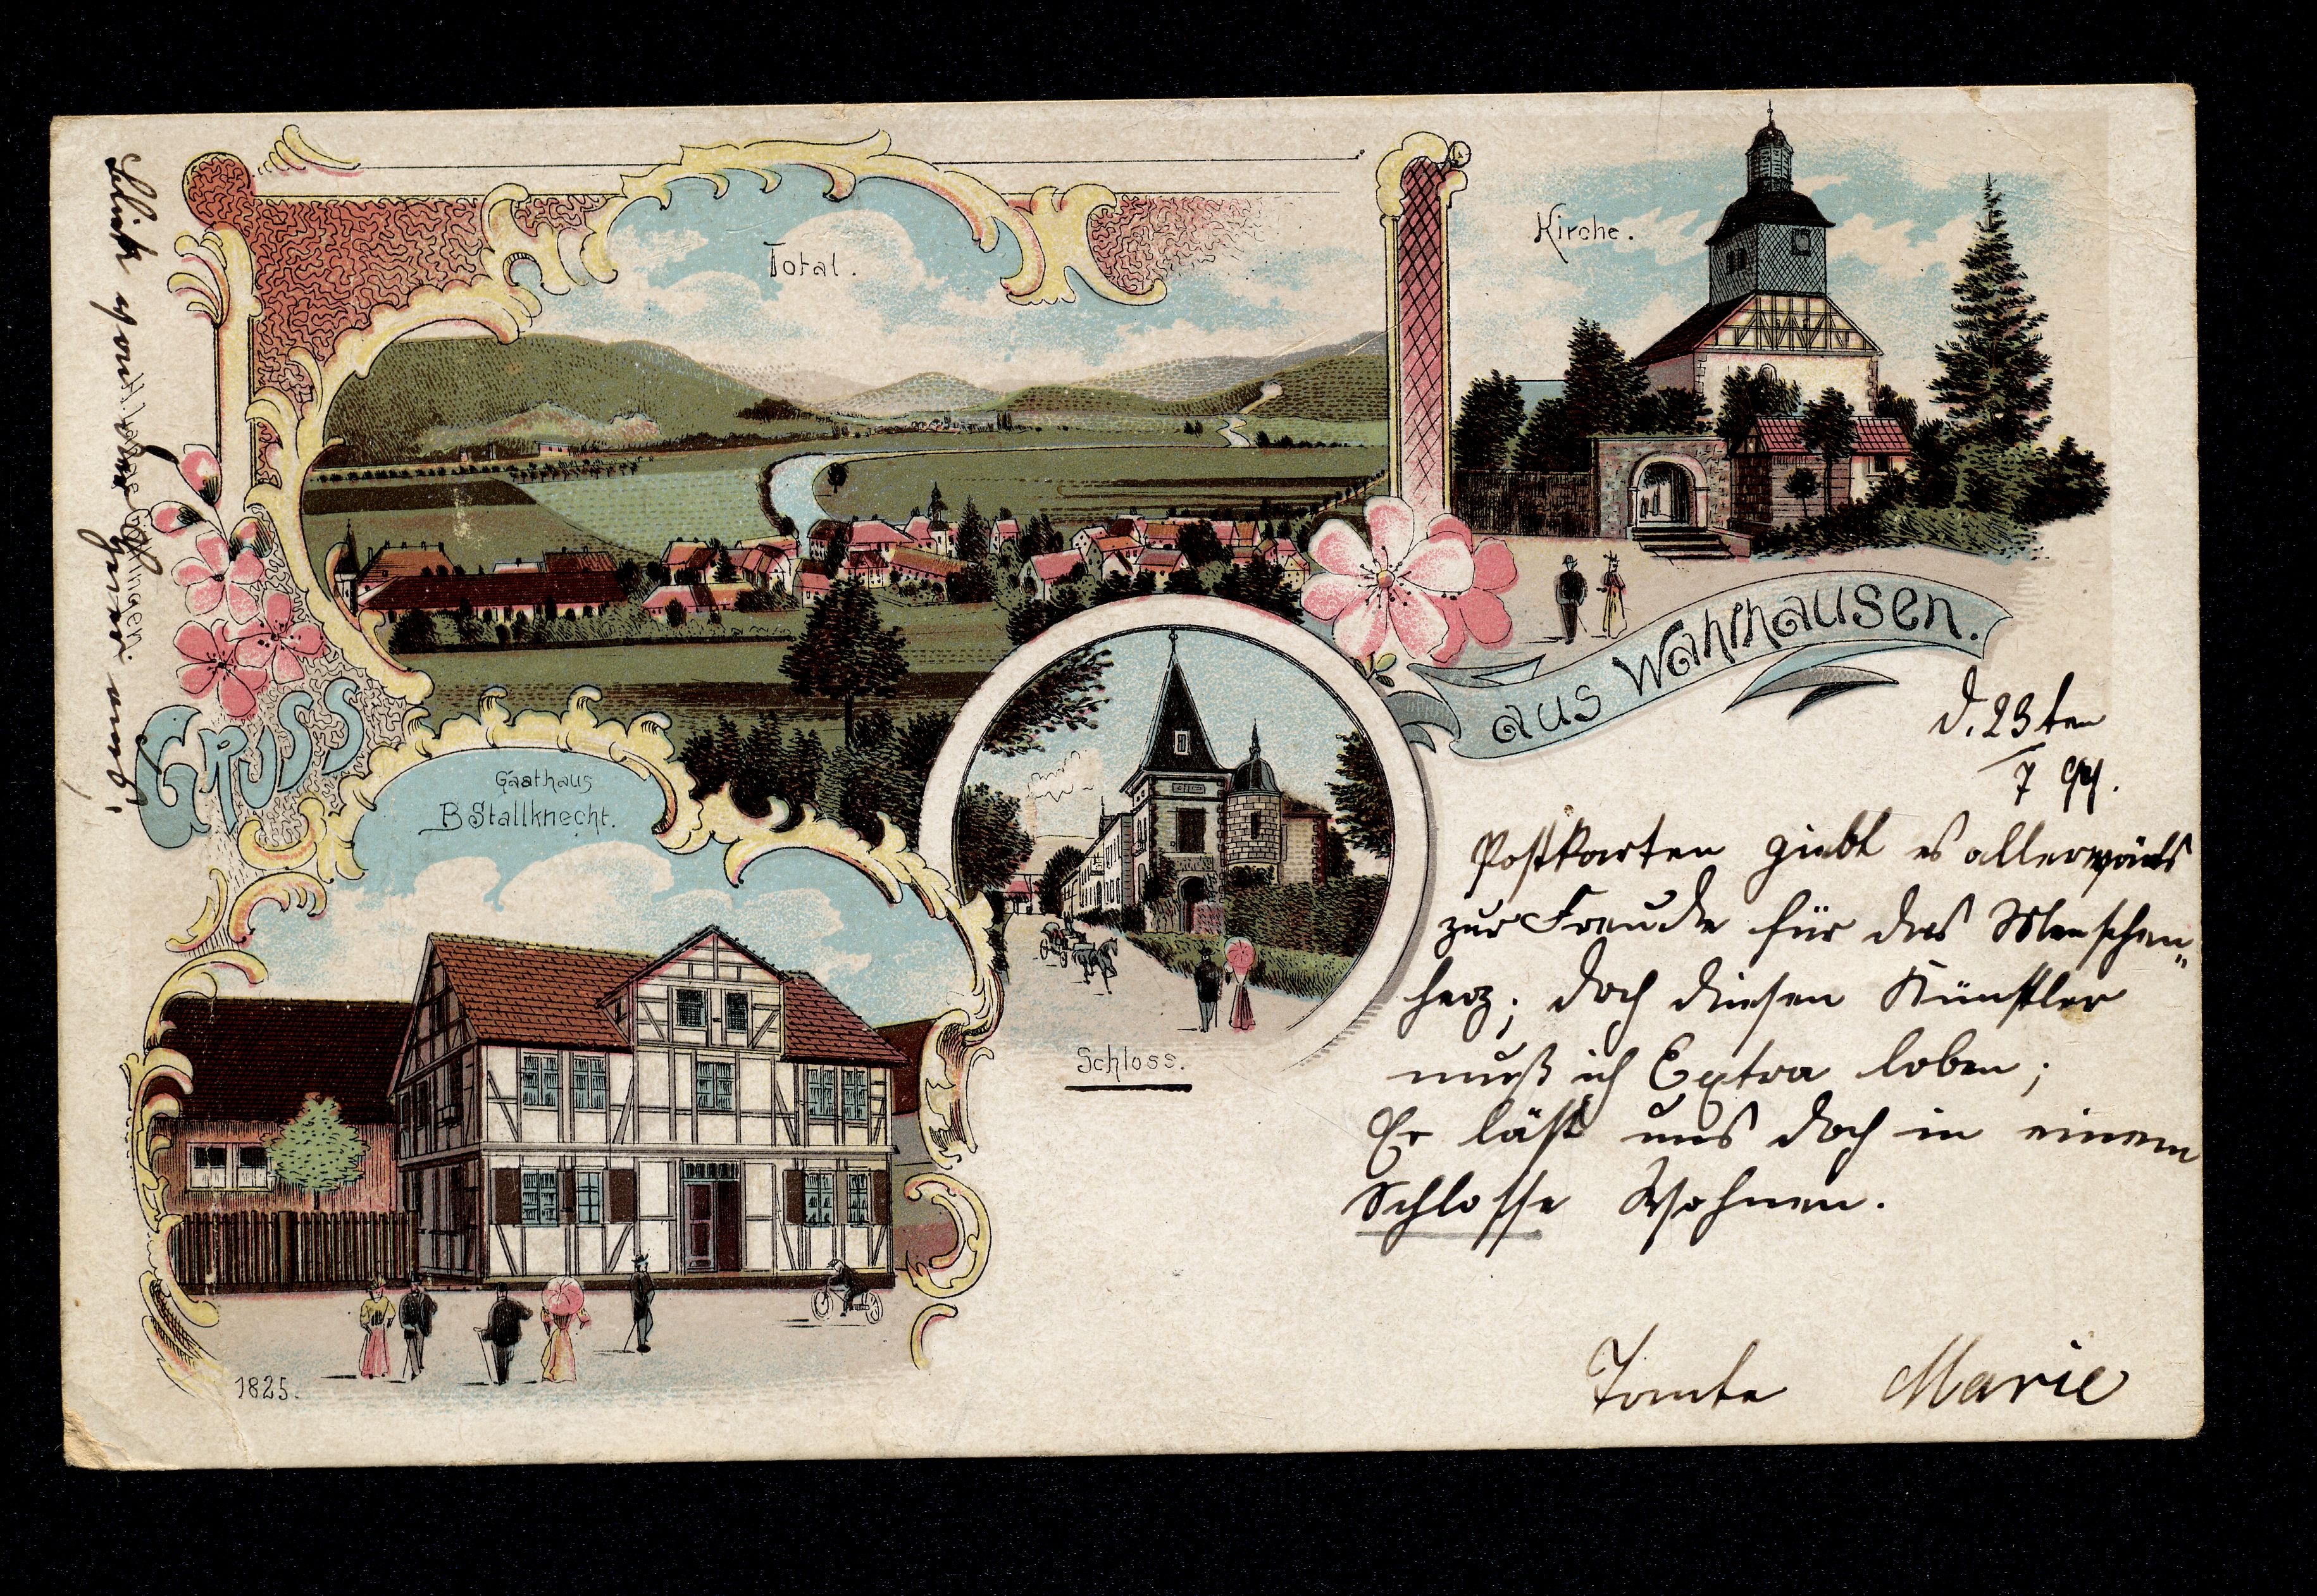 Total.
Kirche.
GRUSS
aus Wahlhausen.
Gasthaus
B Stallknecht.
Schloss.
1825.
d. 23ten
7 99.
Postkarten giebt es allerwärts
zur Freude für das Menschen„
herz; doch diesen Künstler
muß ich Extra loben;
Er läßt uns doch in einem
Schlosse Wohnen.
Tante Marie